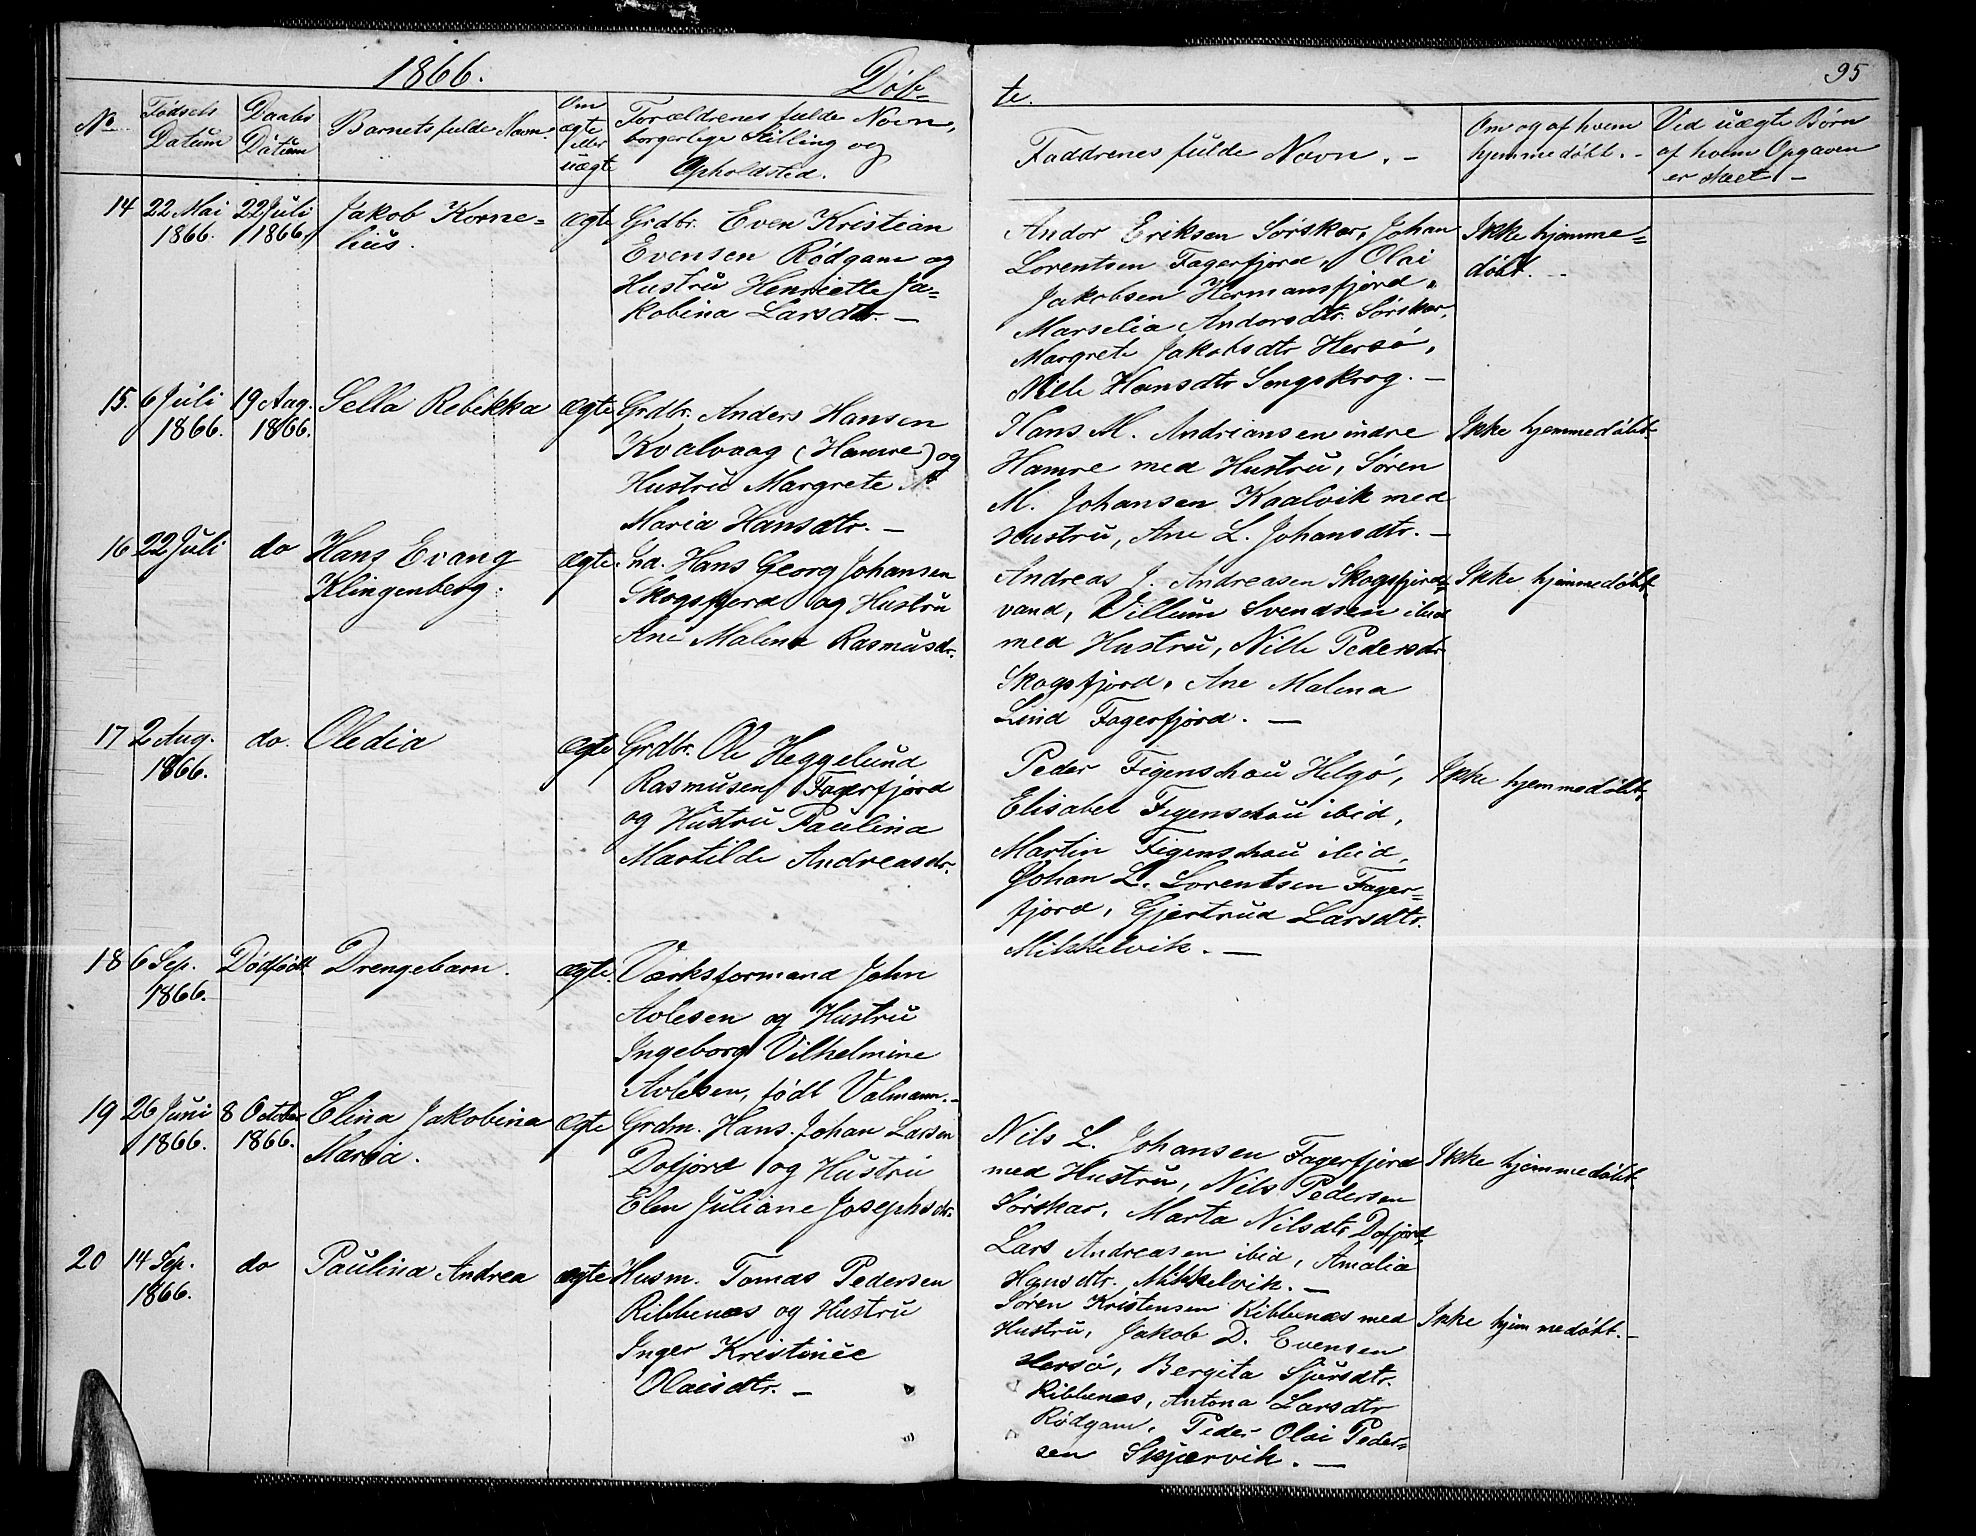 1866.
Døb-
te.
95
No
Fødsels Datum
Daabs Datum
Barnets fulde Navn.
Om ægte eller uægte
Forældrenes fulde Navn, borgerlige Stilling og Opholdsted.
Faddrenes fulde Navn. -
Om og af hvem hjemmedøbt. -
Ved uægte Børn af hvem Opgaven er skeet. -
14
22 Mai 1866.
22 Juli 1866.
Jakob Korne=
lius.
ægte
Grdbr. Even Kristian
Evensen Rødgam og
Hustru Henriette Ja=
kobina Larsdtr. -
Andor Eriksen Sørskar, Johan
Lorentsen Fagerfjord, Olai
Jakobsen Hermansfjord,
Marselia Andorsdtr. Sørskar,
Margrete Jakobsdtr Hersø,
Nille Hansdtr Sengskrog. -
Ikke hjemme=
døbt. -
15.
6 Juli 1866.
19 Aug. 1866.
Sella Rebekka
ægte
Grdbr. Anders Hansen
Kvalvaag (Hamre) og
Hustru Margrete
Maria Hansdtr. -
Hans M. Andriansen indre
Hamre med Hustru, Søren
M. Johansen Kaalvik med
Hustru, Ane L. Johansdtr. -
Ikke hjemmedøbt
16
22 Juli
do
Hans Evang
Klingenberg.
ægte.
Ind. Hans Georg Johansen
Skogsfjord og Hustru
Ane Malena Rasmusdr.
Andreas J. Andreasen Skogsfjord=
vand, Villum Svendsen ibid
med Hustru, Nille Pedersdtr
Skogsfjord, Ane Malena
Lind Fagerfjord. -
Ikke hjemmedøbt
17
2 Aug. 1866.
do.
Oledia
ægte
Grdbr. Ole Heggelund
Rasmusen Fagerfjord
og Hustru Paulina
Martilde Andreasdr.
Peder Figenschau Helgø,
Elisabet Figenschau ibid,
Martin Figenschau ibid,
Johan L. Lorentsen Fager=
fjord, Gjertrud Larsdtr.
Mikkelvik. -
Ikke hjemmedøbt.
18
6 Sep. 1866.
Dødfødt
Drengebarn.
ægte.
Værksformand John
Avlesen og Hustru
Ingeborg Vilhelmine
Avlesen, født Valmann. -
19
26 Juni 1866.
8 October 1866.
Elina Jakobina
Maria.
ægte
Grdm. Hans Johan Larsen
Dofjord og Hustru
Elen Juliane Josephsdr.
Nils L. Johansen Fagerfjord
med Hustru, Nils Pedersen
Sørskar, Marta Nilsdtr Dofjord,
Lars Andreasen ibid, Amalia
Hansdtr. Mikkelvik. -
Ikke hjemmedøbt.
20
14 Sep. 1866.
do
Paulina Andrea
ægte
Husm. Tomas Pedersen
Ribbenæs og Hustru
Inger Kristine
Olaisdtr. -
Søren Kristensen Ribbenæs med
Hustru, Jakob D. Evensen
Hersø, Bergita Sjursdtr.
Ribbenæs, Antona Larsdtr
Rødgam, Peder Olai Peder=
sen Skjærvik. -
Ikke hjemmedøbt. -